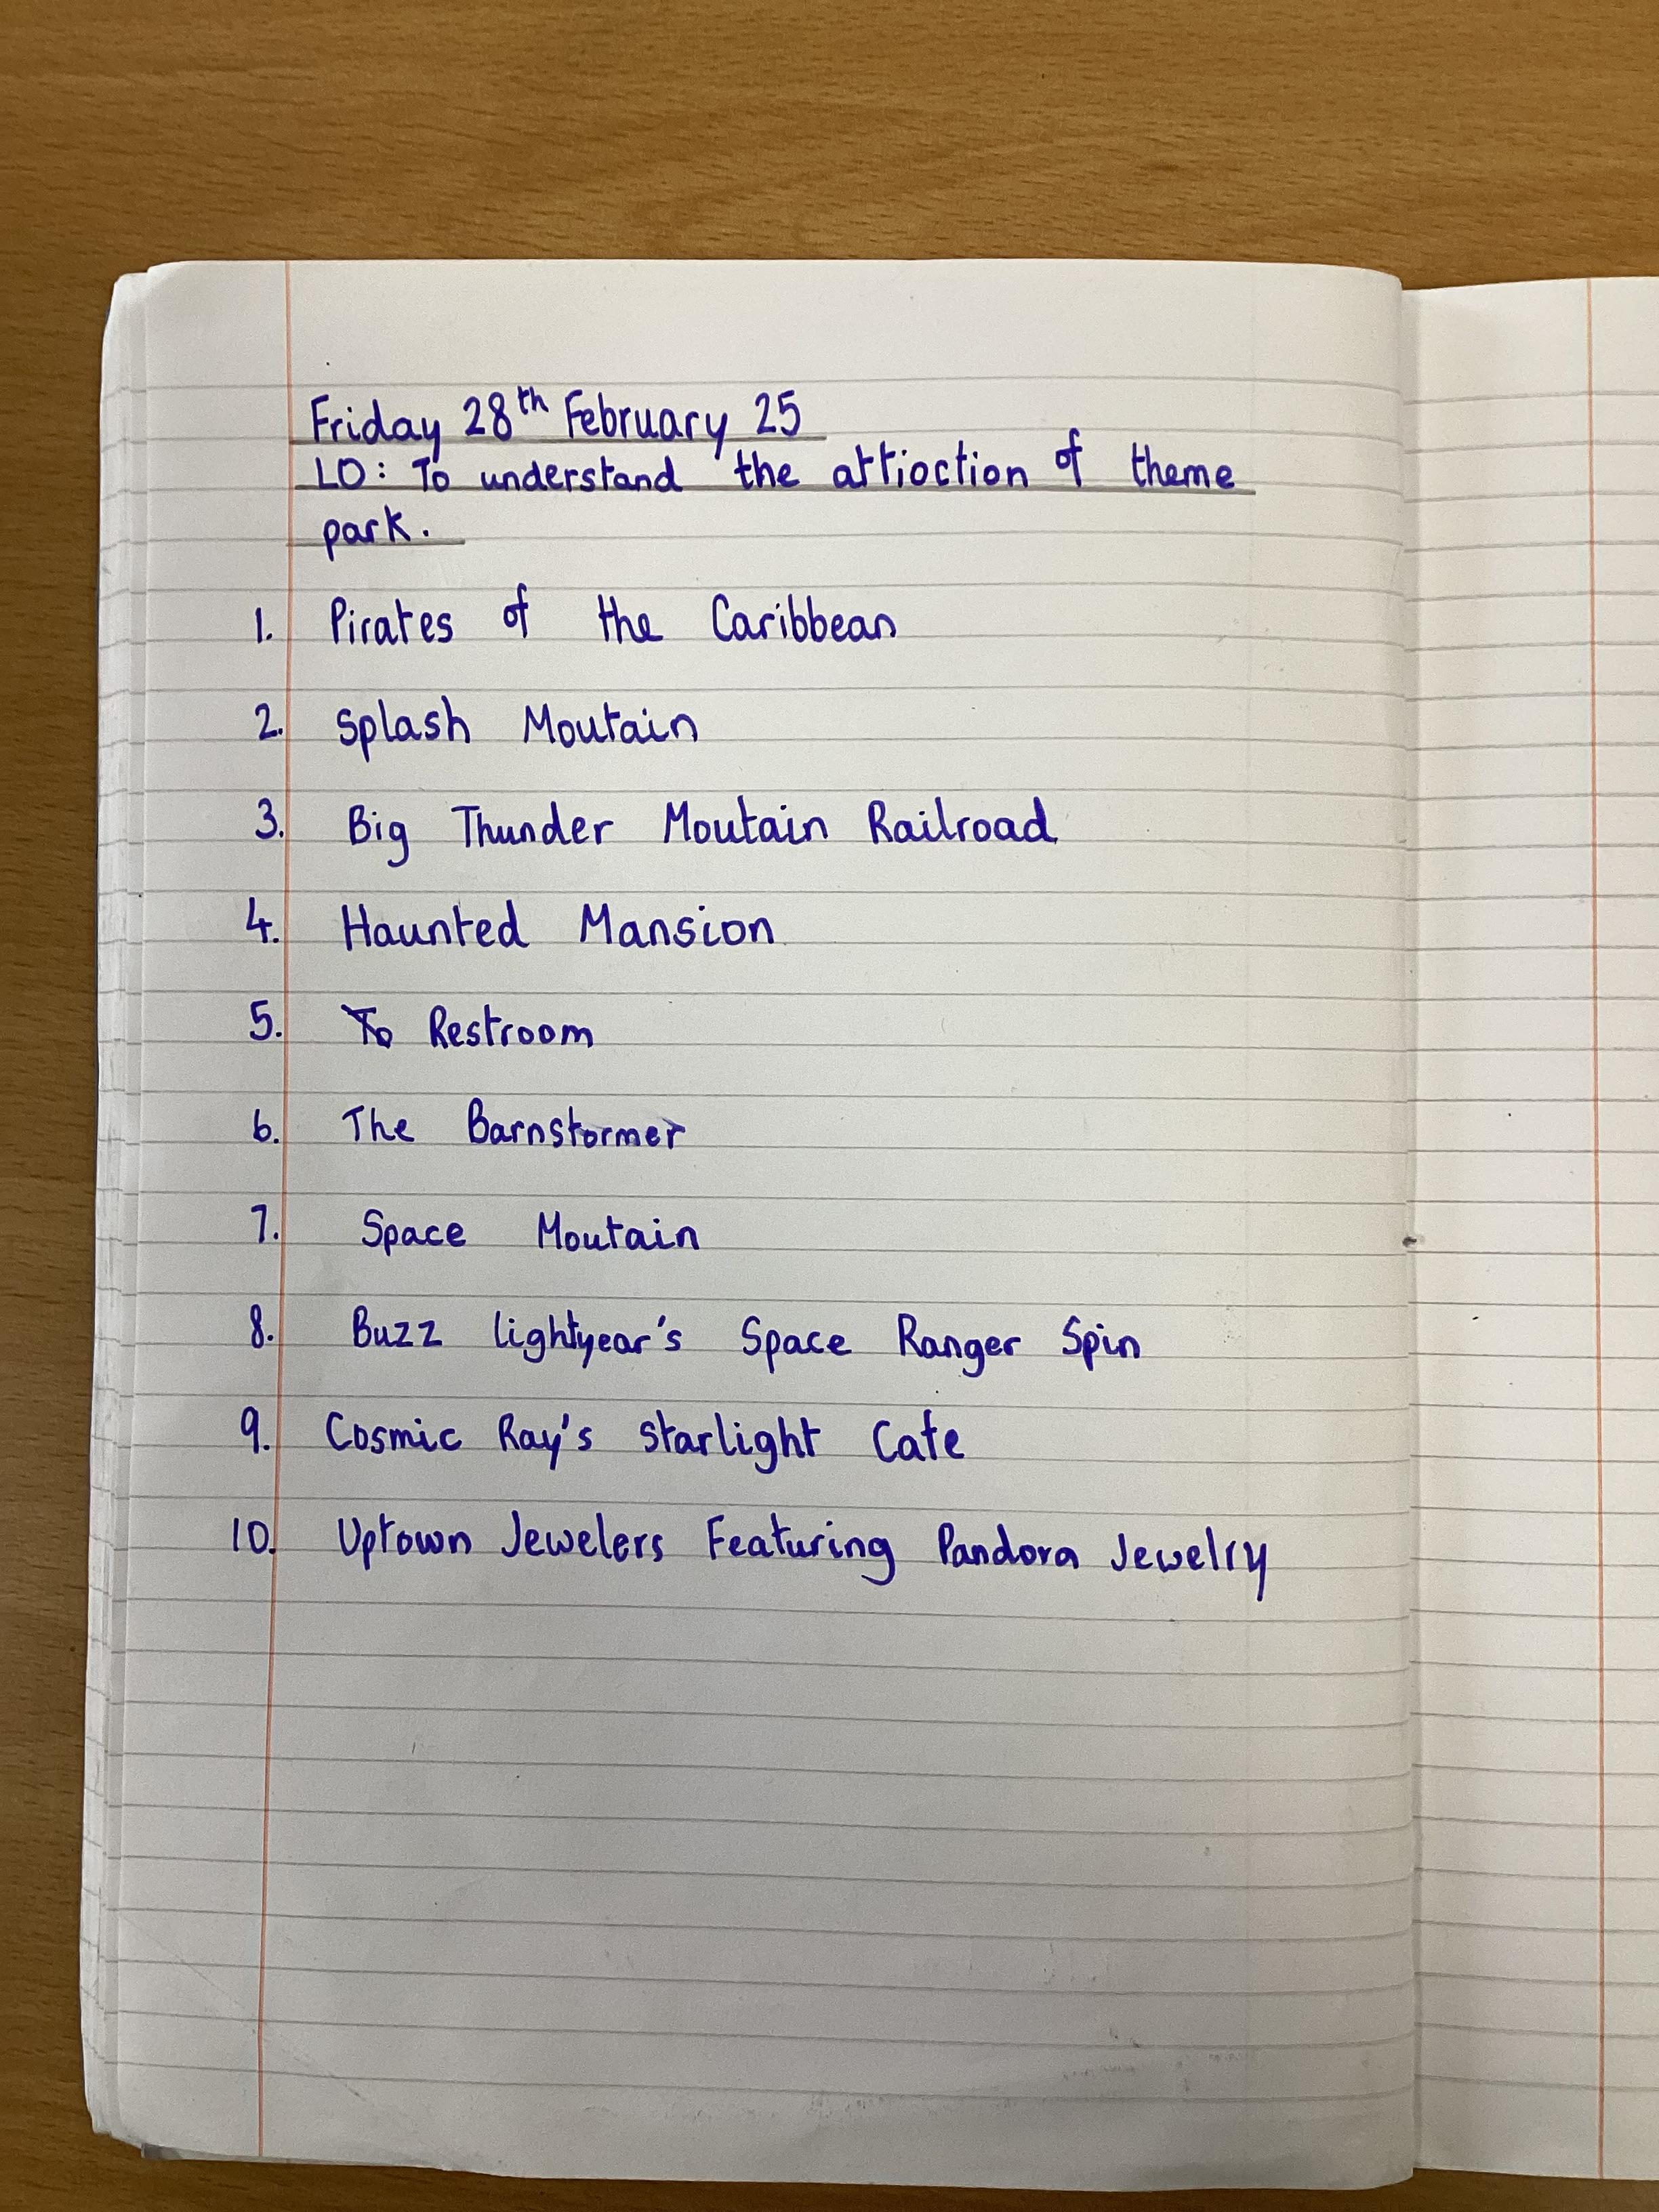 Friday 28th February 25
LO: To understand the attioction of theme
park.
1. Pirates of the Caribbean
2. Splash Moutain
3. Big Thunder Moutain Railroad
4. Haunted Mansion
5. Restroom
6. The Barnstormer
7. Space Moutain
8. Buzz lightyear's Space Ranger Spin
9. Cosmic Ray's starlight Cafe
10. Uptown Jewelers Featuring Pandora Jewelry